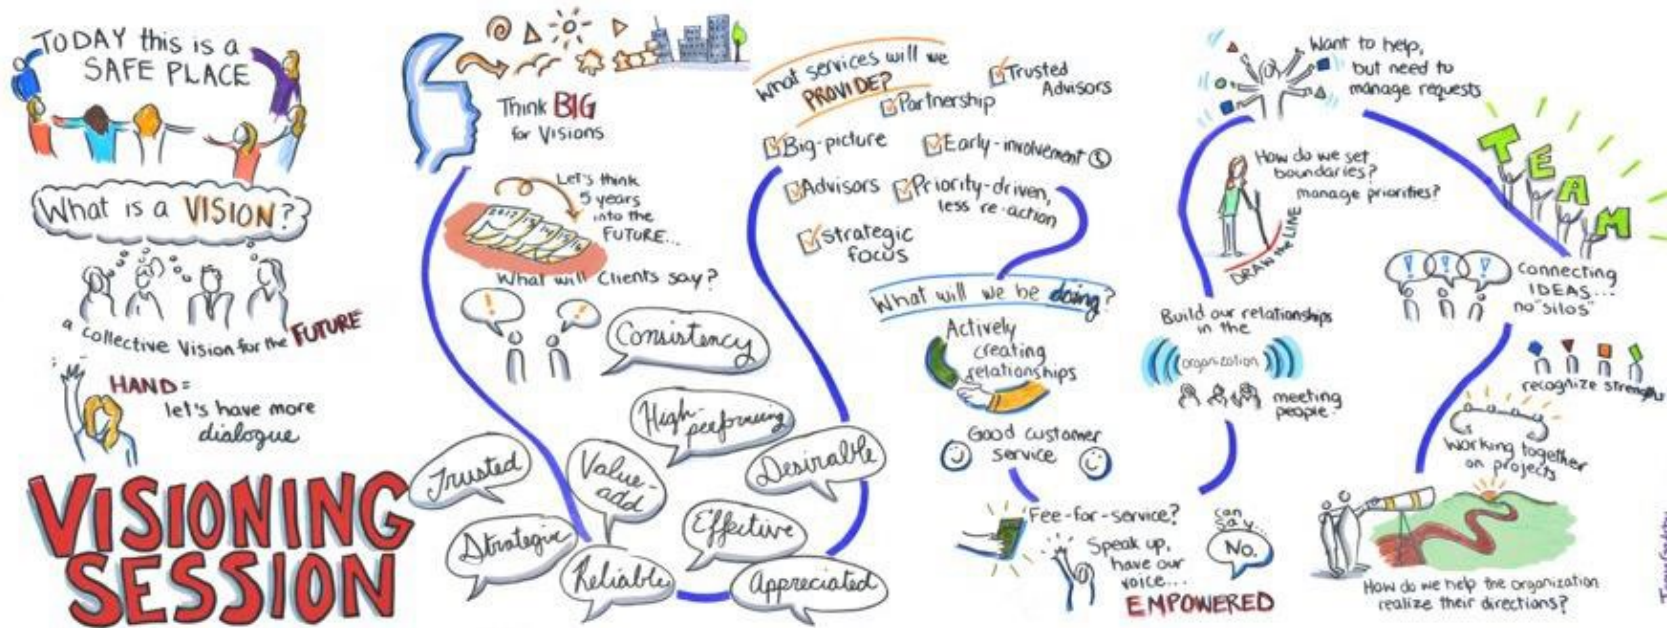 TODAY this is a
SAFE PLACE
What is a VISION?
a collective Vision for the FUTURE
HAND =
let's have more
dialogue
VISIONING
SESSION
Think BIG
for Visions
Let's think
5 years
into the
FUTURE...
2012
What will Clients say?
Consistency
High-
performing
Desirable
Value-
add
Trusted
Strategic
Effective
Reliable
Appreciated
What services will we
PROVIDE?
Trusted
Advisors
Partnership
Big-picture
Early-involvement
Advisors
Priority-driven,
less re-action
Strategic
focus
What will we be doing?
Actively
creating
relationships
Good customer
service
Fee-for-service?
Speak up,
have our
voice...
EMPOWERED
can
say...
No.
Build our relationships
in the
organization
meeting
people
How do we set
boundaries?
manage priorities?
DRAW the LINE
Want to help,
but need to
manage requests
TEAM
connecting
IDEAS...
no "silos"
recognize strengths
Working together
on projects
How do we help the organization
realize their directions?